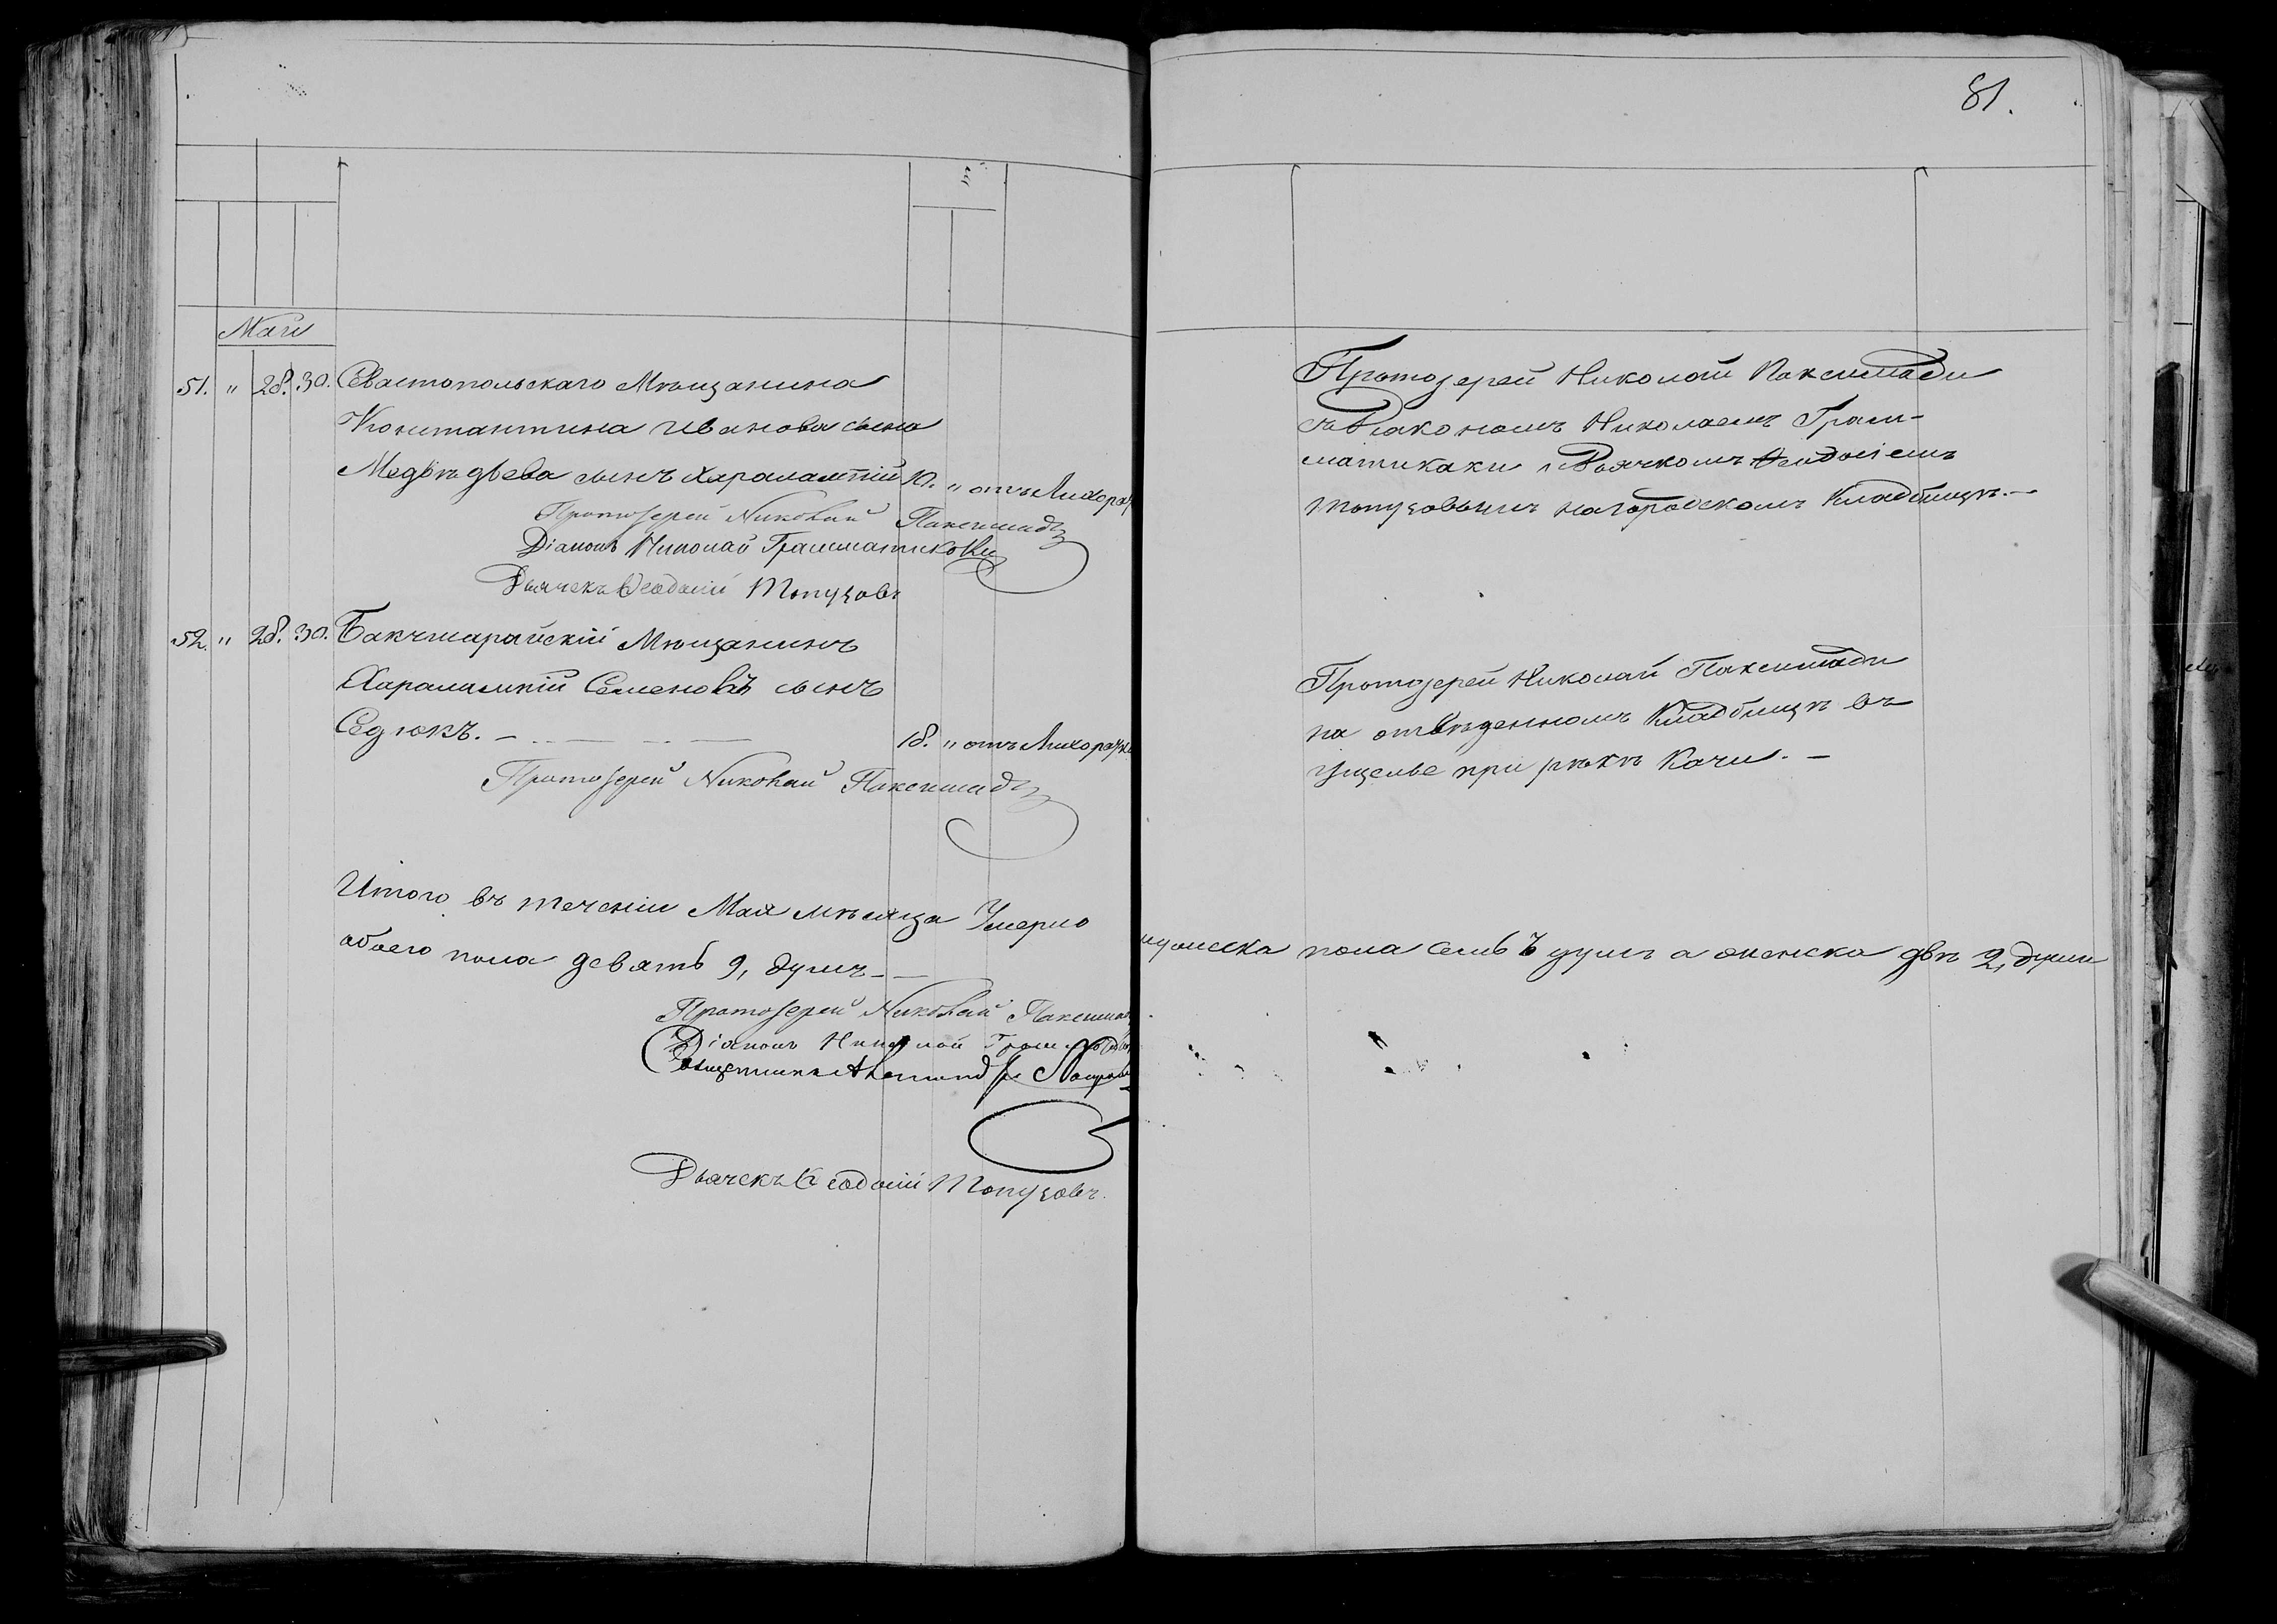 81.
Маій
51. " 28. 30. Севастопольскаго Мѣщанина
Константина Иванова сына
Медвѣдьева сынъ Харалампій 10. " отъ Лихорад
Протоіерей Николай Паксимади
Діаконъ Николай Грамматикаки
Дьячекъ Ѳеодосій Топузовъ
52. " 28. 30. Бакчисарайскій Мѣщанинъ
Харалампій Семеновъ сынъ
Седюкъ. — 18. " отъ Лихорадки
Протоіерей Николай Паксимади
Итого въ теченіи Мая мѣсяца Умерло
обоего пола девять 9, душъ —
Протоіерей Николай Паксимади
Діаконъ Николай
Священникъ Александръ
Дьячекъ Ѳеодосій Топузовъ.
Протоіерей Николай Паксимади
съ Діакономъ Николаемъ Грам-
матикаки и Дьячкомъ Ѳеодосіемъ
Топузовымъ на городскомъ Кладбищѣ. —
Протоіерей Николай Паксимади
на отведенномъ Кладбищѣ въ
Ущелье при рѣкѣ Качи. —
мужеска пола семь 7 душъ а женска двѣ 2, души